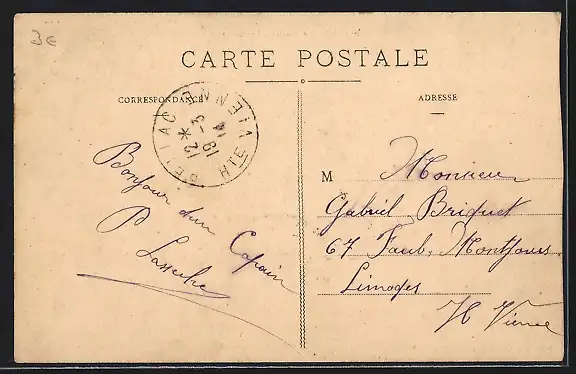 3€
CARTE POSTALE
CORRESPONDANCE
ADRESSE
BELLAC
HTE VIENNE
12 *
18 - 3
14
Bonjour d'un Copain
P
M Monsieur
Gabriel Briquet
67 Faub. Montjovis
Limoges
Hte Vienne